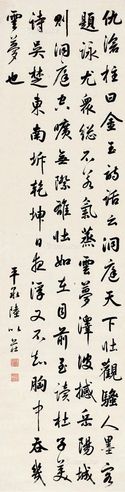 仇滄柱曰金玉詩話云洞庭天下壯觀騷人墨客
題詠尤眾終不若氣蒸雲夢澤波撼岳陽城
則洞庭空曠無際雄壯如在目前至讀杜子美
詩吳楚東南坼乾坤日夜浮又不知胸中吞幾
雲夢也
平叔陸以莊